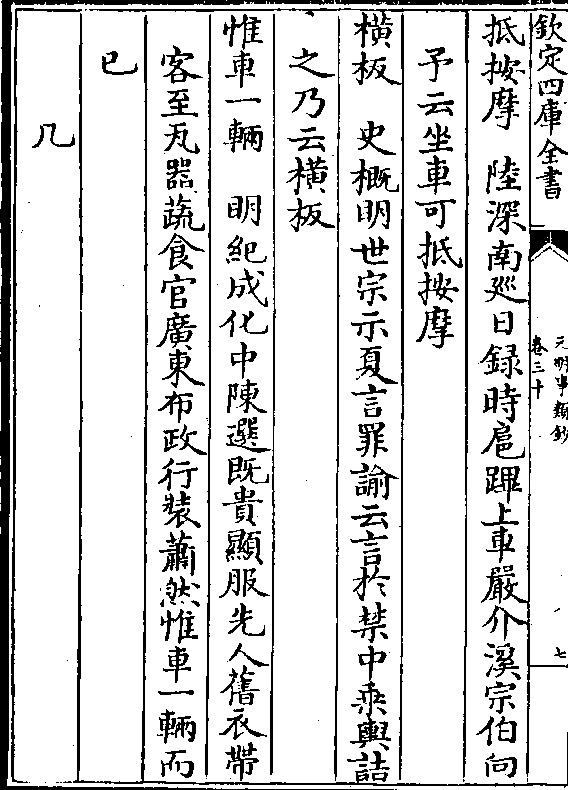 欽定四庫全書
元明事類鈔
卷三十
七
抵按摩　陸深南廵日録時扈蹕上車嚴介溪宗伯向
予云坐車可抵按摩
横板　史概明世宗示夏言罪諭云言於禁中乘輿詰
之乃云横板
惟車一輛　明紀成化中陳選既貴顯服先人舊衣帶
客至瓦器蔬食官廣東布政行裝蕭然惟車一輛而
已
几